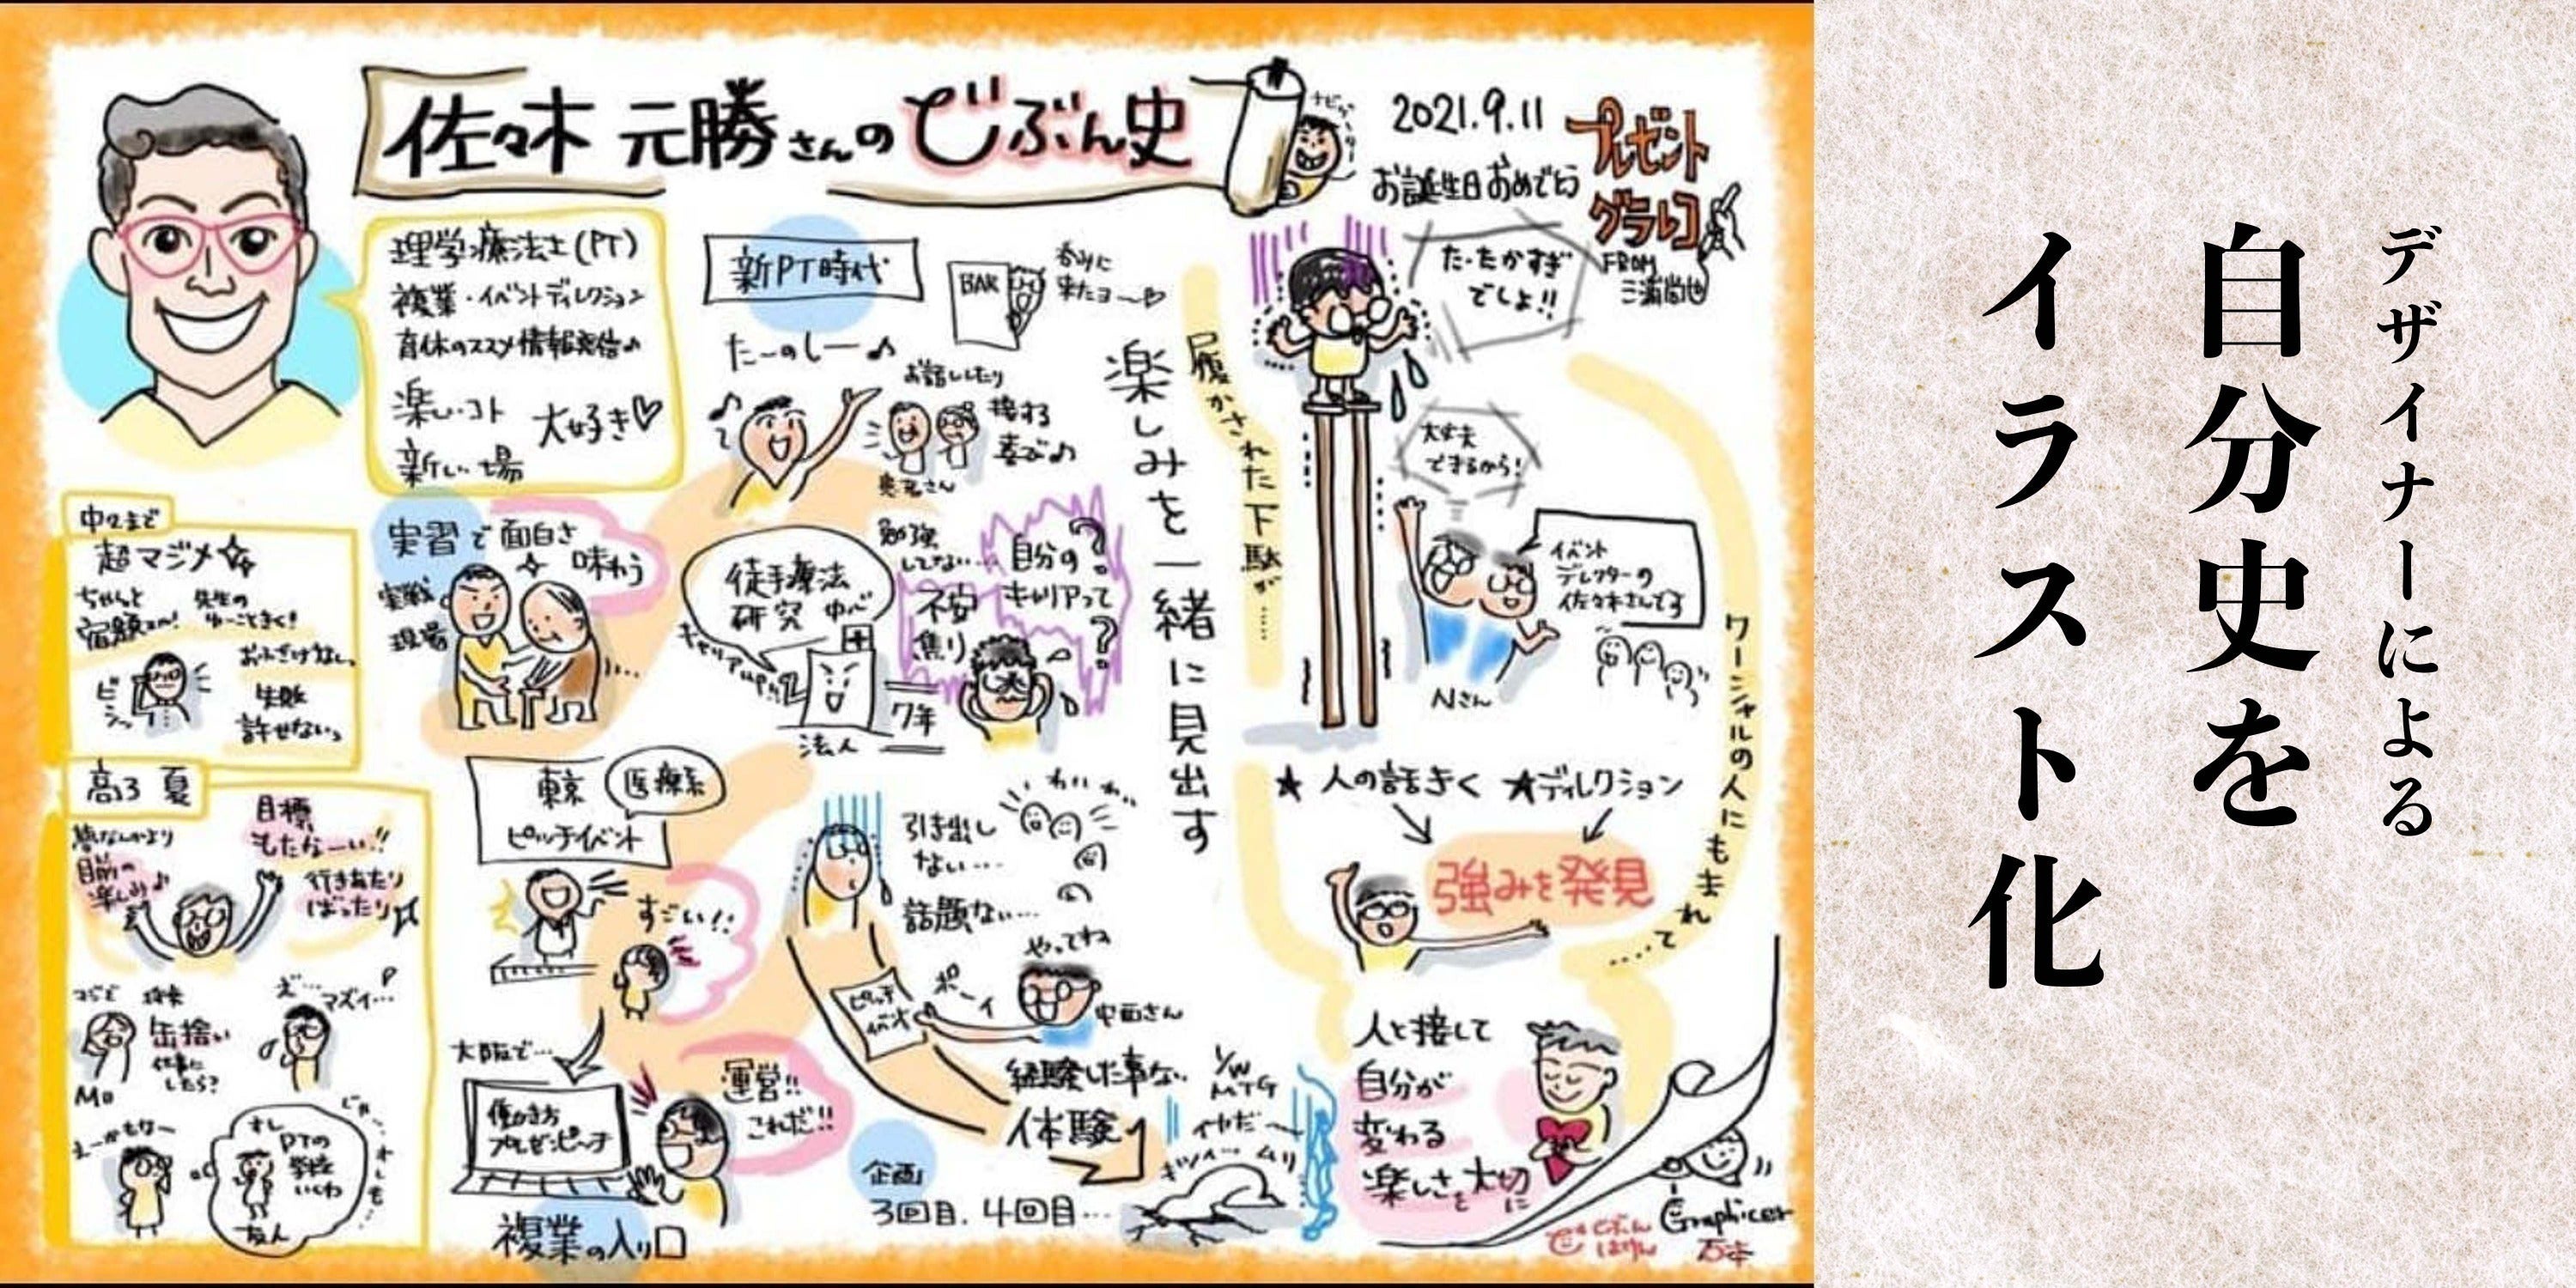 佐々木 元勝さんの じぶん史
ナビゲーター
2021.9.11
お誕生日おめでとう
プレゼント
グラレコ
FROM
三浦尚也
理学療法士(PT)
複業・イベントディレクション
育休のススメ情報発信♪
楽しいコト
新しい場
大好き♡
中2まで
超マジメ☆
ちゃんと
宿題
先生の
ゆーこときく!
おふざけなし。
失敗
許せない。
ビシッ
高3 夏
夢なんかより
目前の
楽しみ♪
目標
もたなーい!!
行きあたり
ばったり
将来
缶捨い
仕事に
したら?
え…
マズイ…
オレ
PTの
学校
いくわ
友人
実習で面白さ
味わう
実戦
現場
新PT時代
たーのしー♪
BAR
呑みに
来たヨ〜♡
お話ししたり
接する
喜ぶ♪
患者さん
徒手療法
研究 中心
キャリアUP!!
法人
7年
勉強
してない…
不安
焦り
自分の
キャリアって
?
東京
医療系
ピッチイベント
すごい!!
大阪で…
働き方
プレゼンピッチ
運営!!
これだ!!
複業の入り口
わいわい
引き出し
ない…
話題ない…
やってね
ポーイ
ピッチ
イベント
中西さん
経験した事ない
体験
企画
3回目、4回目…
1/w
MTG
イヤだ〜
キツイ… ムリ
楽しみを一緒に見出す
履かされた下駄が……
た・たかすぎ
でしょ!!
大丈夫
できるから!
イベント
ディレクターの
佐々木さんです
Nさん
ワーシャルの人にもまれて……
★ 人の話きく ★ディレクション
強みを発見
人と接して
自分が
変わる
楽しさを大切に
じぶん
Graphicer
石本
デザイナーによる
自分史を
イラスト化